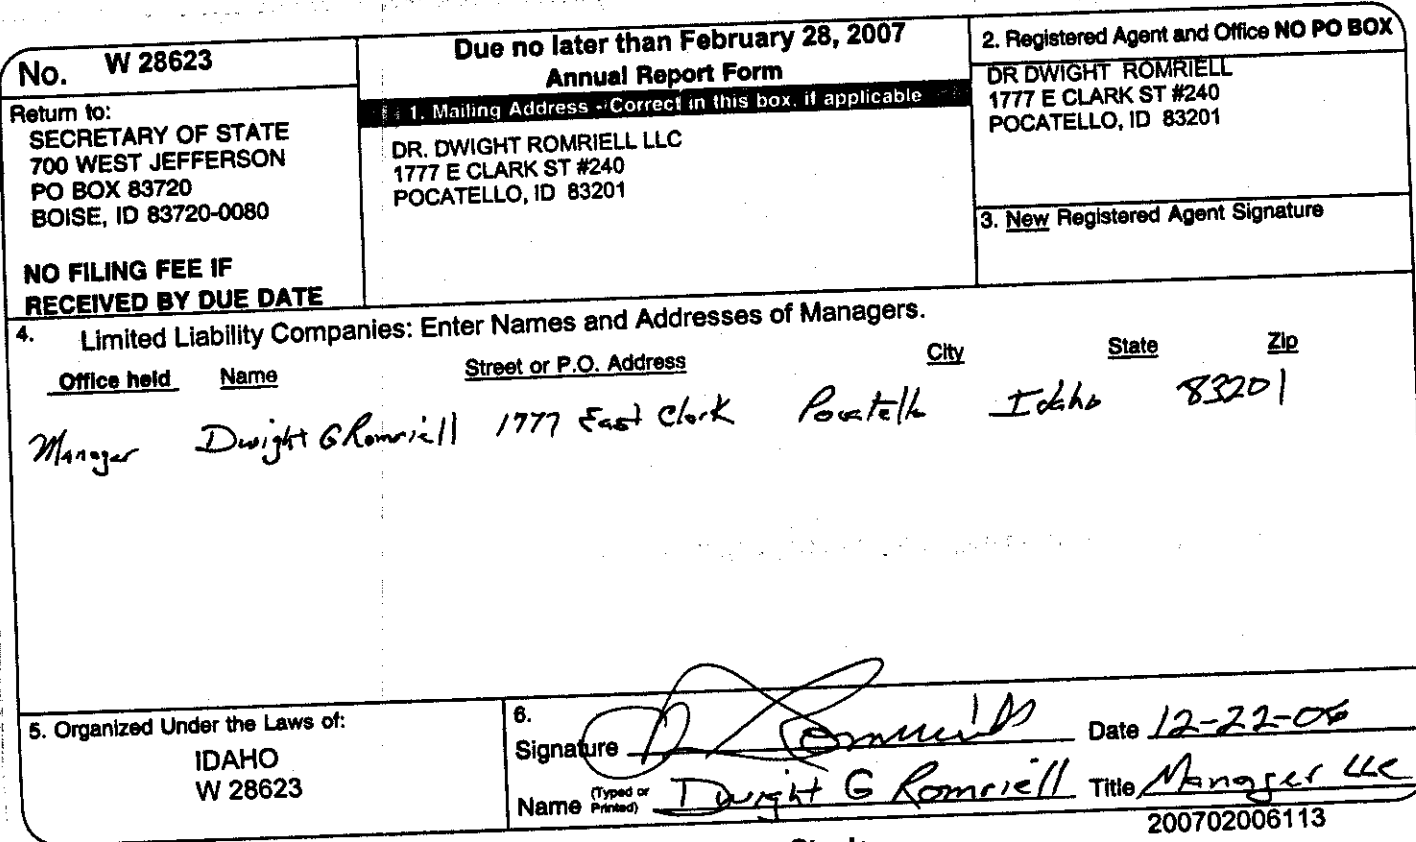 No. W 28623
Return to:
SECRETARY OF STATE
700 WEST JEFFERSON
PO BOX 83720
BOISE, ID 83720-0080
NO FILING FEE IF
RECEIVED BY DUE DATE
Due no later than February 28, 2007
Annual Report Form
1. Mailing Address - Correct in this box, if applicable
DR. DWIGHT ROMRIELL LLC
1777 E CLARK ST #240
POCATELLO, ID 83201
2. Registered Agent and Office NO PO BOX
DR DWIGHT ROMRIELL
1777 E CLARK ST #240
POCATELLO, ID 83201
3. New Registered Agent Signature
4. Limited Liability Companies: Enter Names and Addresses of Managers.
Office held Name Street or P.O. Address City State Zip
Manager Dwight G Romriell 1777 East Clark Pocatello Idaho 83201
5. Organized Under the Laws of:
IDAHO
W 28623
6.
Signature Date 12-22-06
Name (Typed or Printed) Dwight G Romriell Title Manager LLC
200702006113